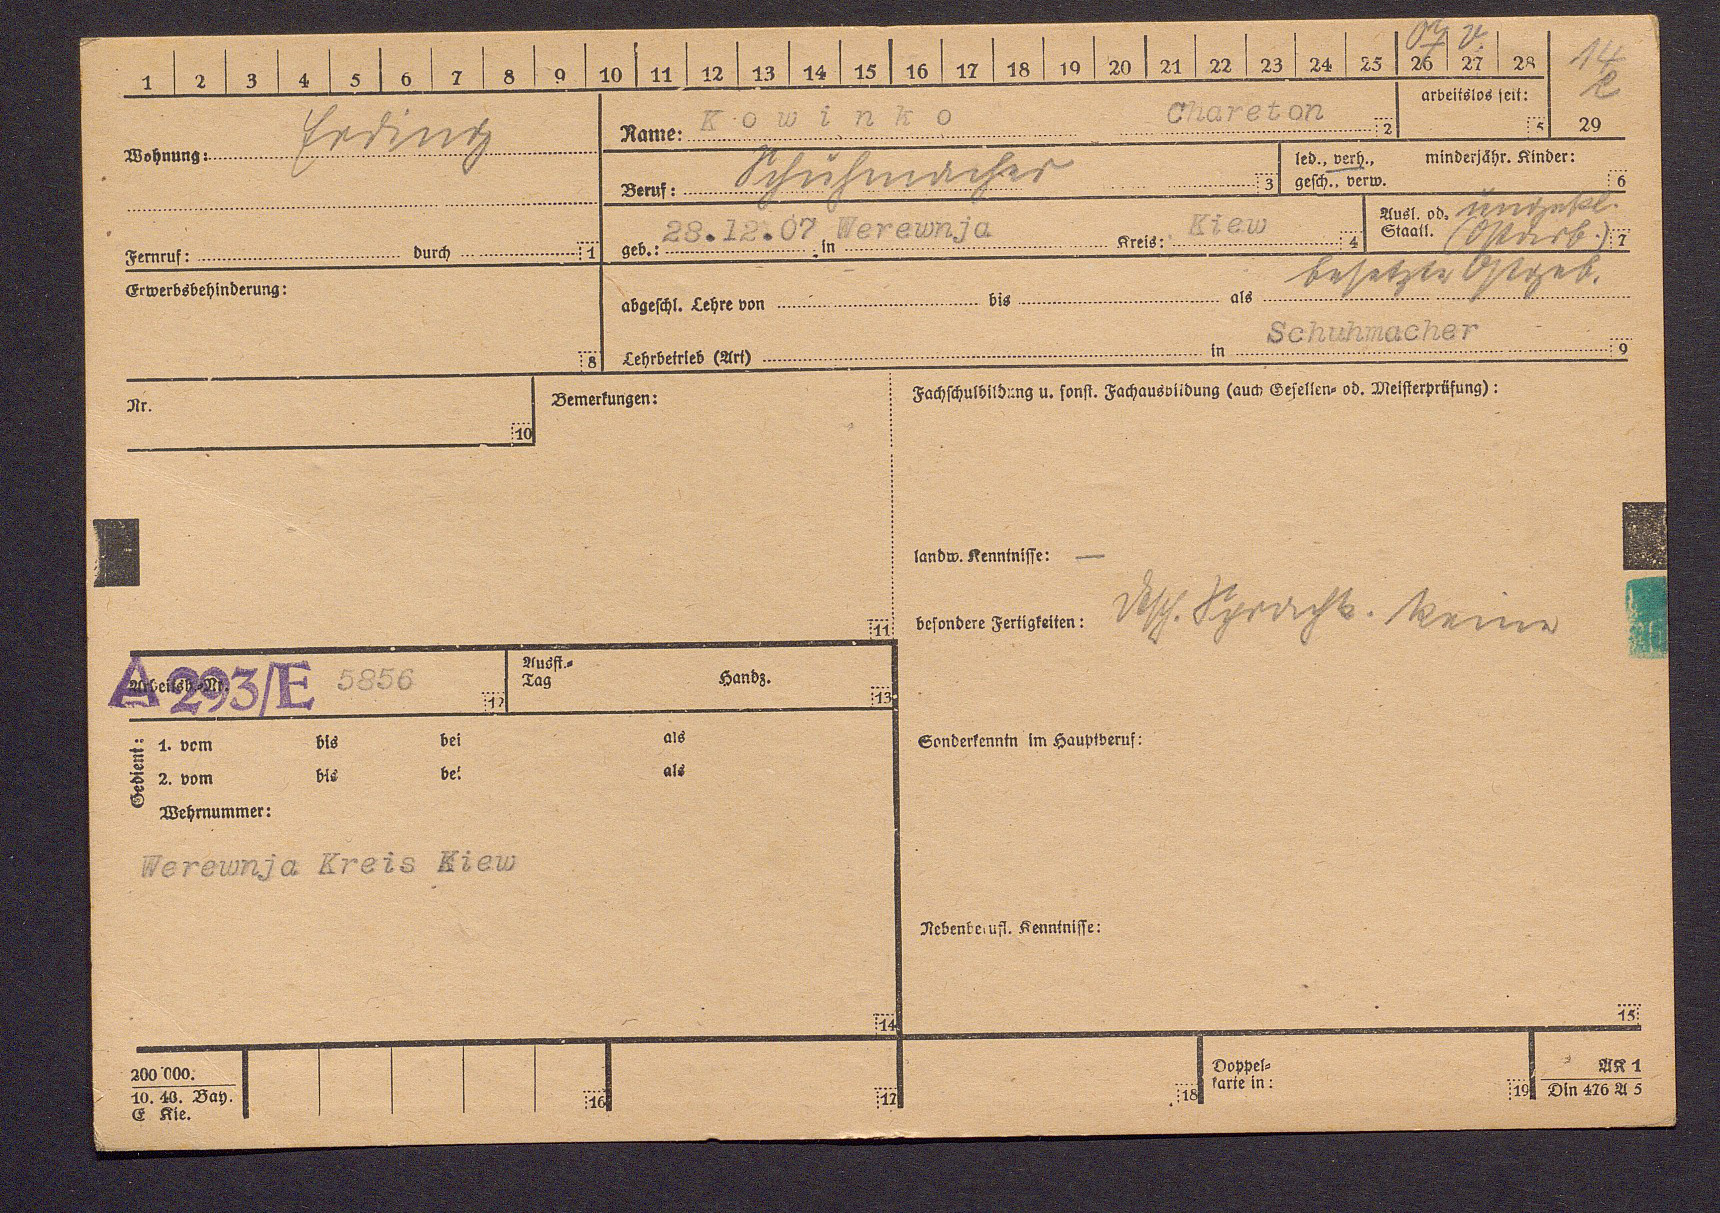 1 2 3 4 5 6 7 8 9 10 11 12 13 14 15 16 17 18 19 20 21 22 23 24 25 26 27 28
14
29
arbeitslos seit:
5
Wohnung: Erding
Name: Kowinko Chareton 2
Beruf: Schuhmacher 3
led., verh., minderjähr. Kinder:
gesch., verw. 6
geb.: 28.12.07 in Werewnja Kreis: Kiew 4
Ausl. od.
Staatl. (Ostarb.) 7
besetzte Ostgeb.
Fernruf: durch 1
Erwerbsbehinderung:
8
abgeschl. Lehre von bis als
Schuhmacher
Lehrbetrieb (Art) in 9
Nr.
10
Bemerkungen:
11
Fachschulbildung u. sonst. Fachausbildung (auch Gesellen- od. Meisterprüfung):
landw. Kenntnisse: —
besondere Fertigkeiten: dtsch. Sprachk. keine
Arbeitsb.-Nr. A 293/E 5856 12
Ausst.-
Tag Handz. 13
Gedient:
1. vom bis bei als
2. vom bis bei als
Wehrnummer:
Werewnja Kreis Kiew
14
Sonderkenntn im Hauptberuf:
Nebenberufl. Kenntnisse:
15
200 000.
10. 43. Bay.
E Kie.
16
17
18
Doppel-
karte in: 19
AK 1
Din 476 A 5